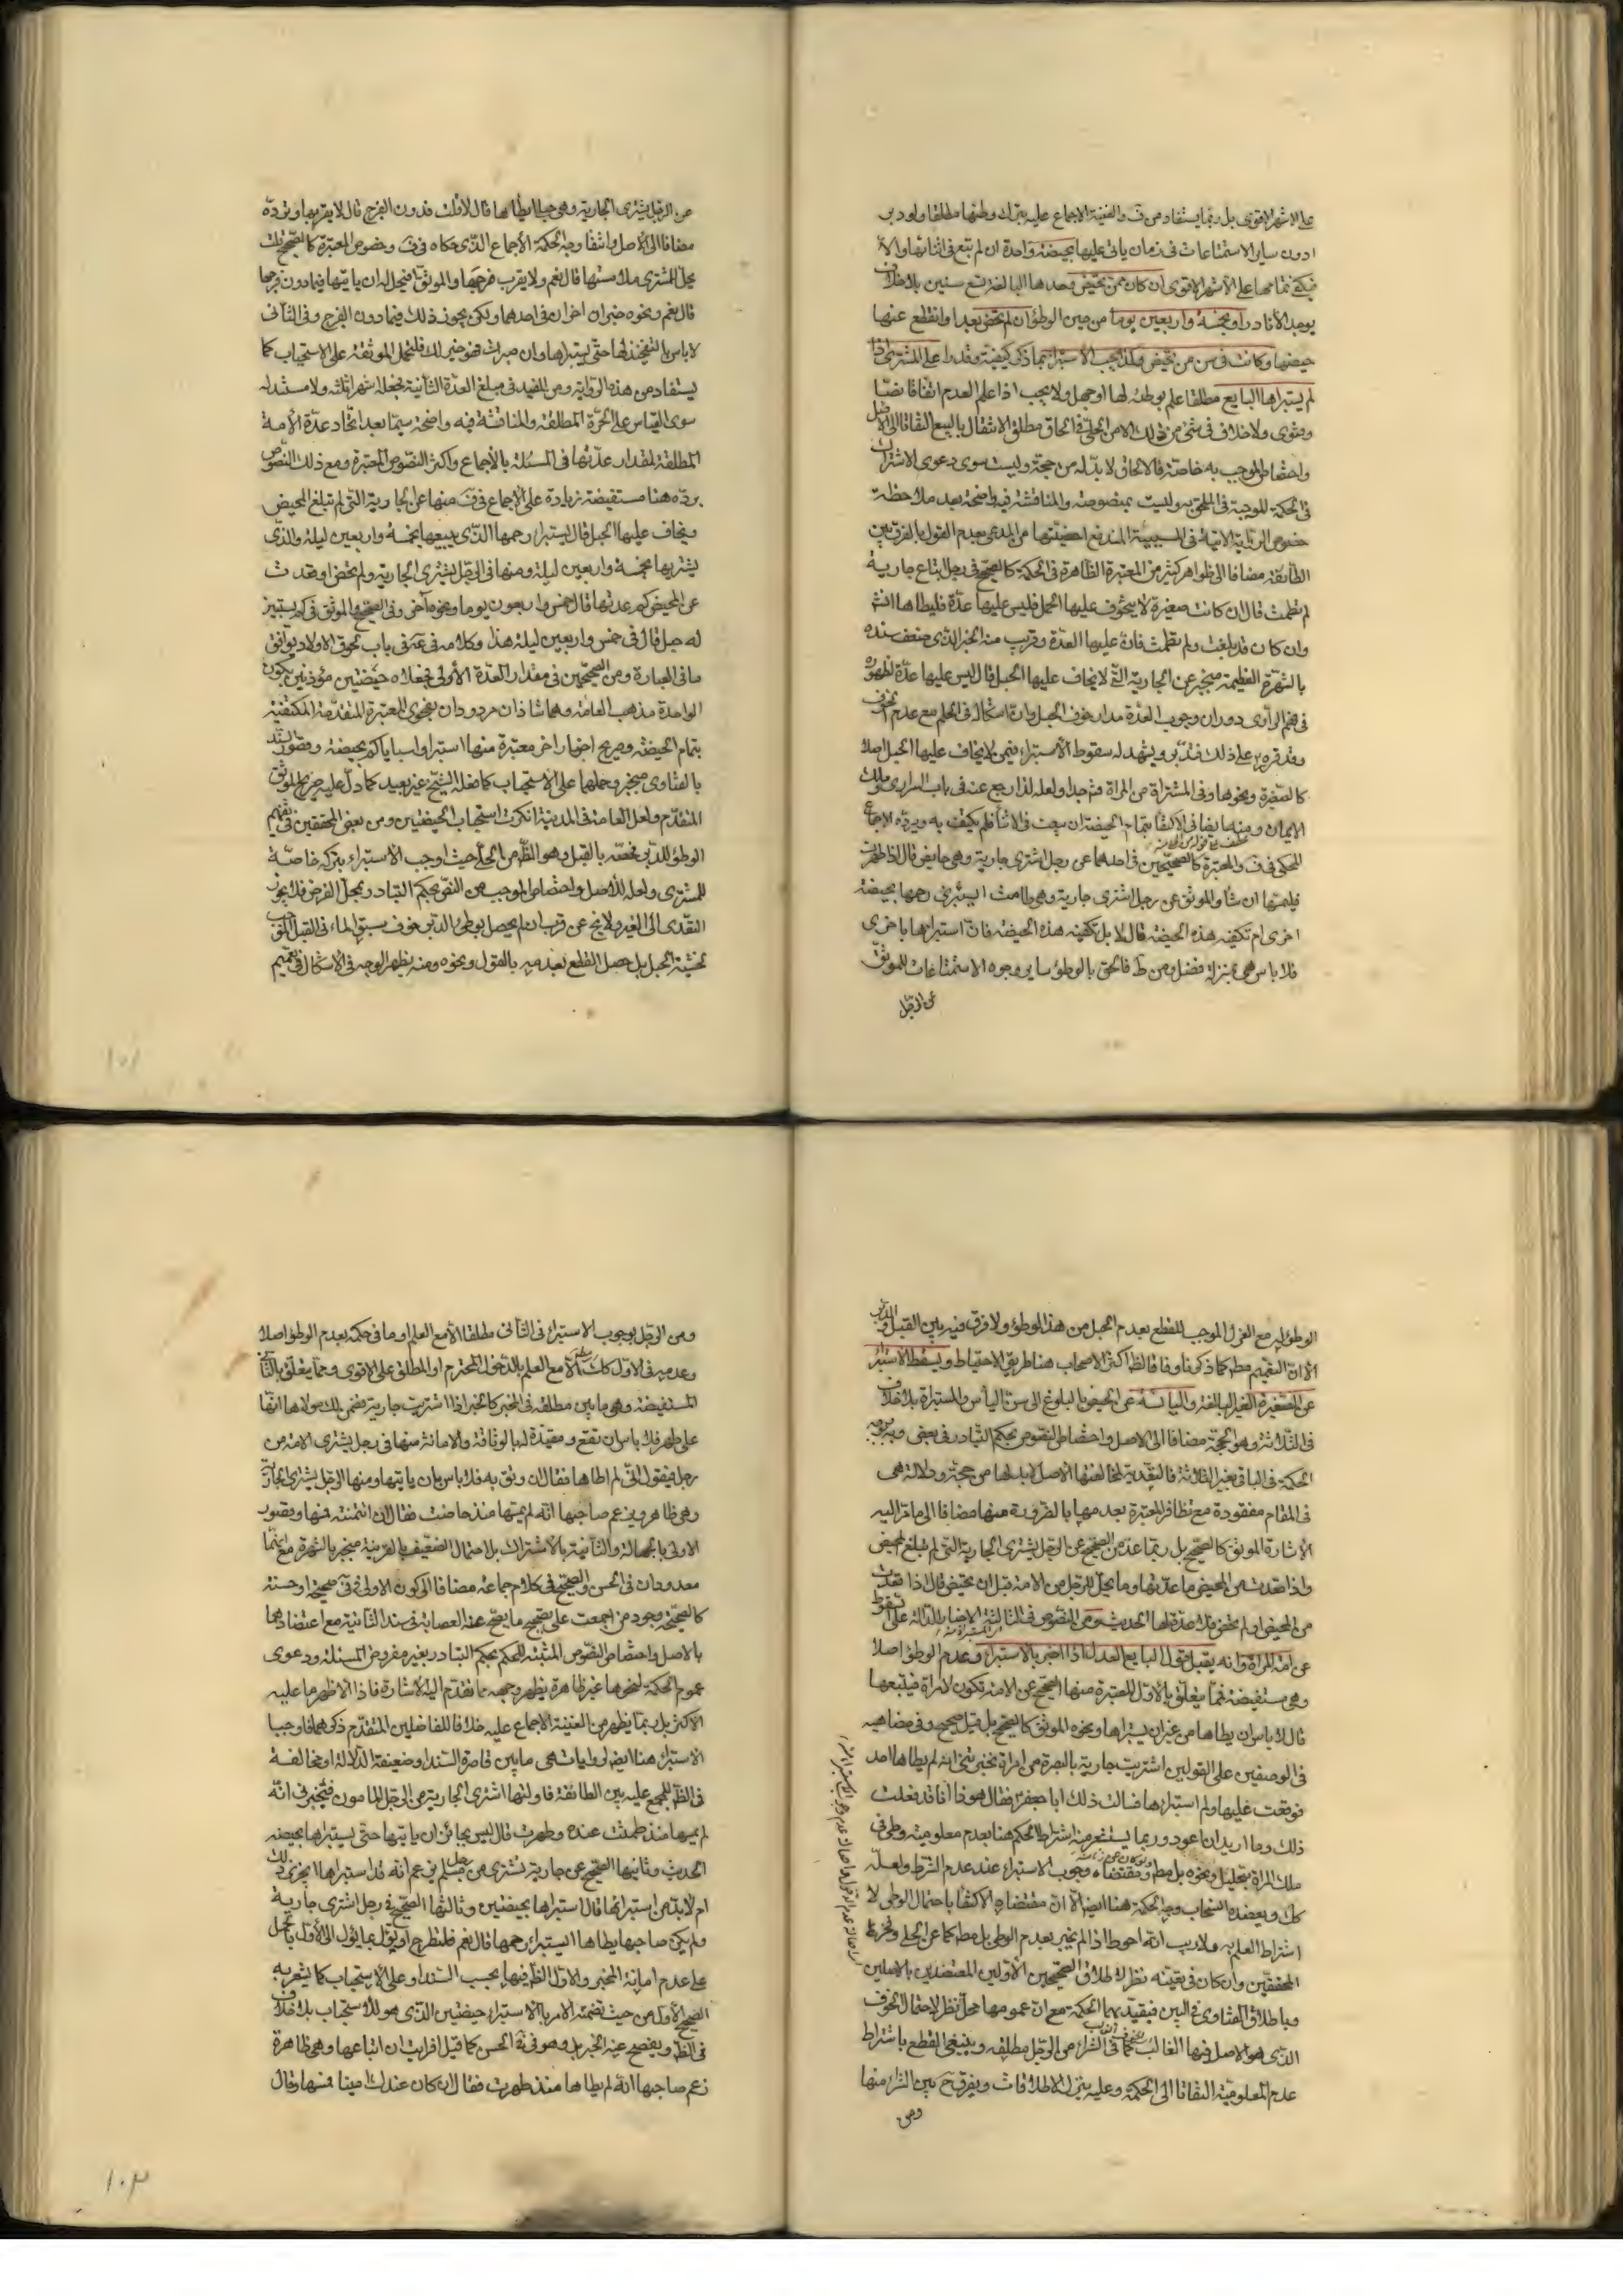 على الاشهر الاقوى بل ربما يستفاد من ف والغنية الاجماع عليه بترك وطئها مطلقا ولو دبرا
دون ساير الاستمتاعات في زمان ياتي عليها بحيضة واحدة ان لم تبع في اثنائها والا
فيكفي تمامها على الاشهر الاقوى ان كان ممن تحيض وحدها البالغة تسع سنين بلا خلاف
يوجد الا نادرا وبخمسة واربعين يوما من حين الوطؤ ان لم تحض بعد او انقطع عنها
حيضها وكانت في سن من تحيض وكذا يجب الاستبراء بما ذكر كيفية وقدرا على المشتري اذا
لم يستبرأها البايع مطلقا علم بوطئه لها او جهل ولا يجب اذا علم العدم اتفاقا نصا
وفتوى ولا خلاف في شئ من ذلك الا من الحلي في الحاق مطلق الانتقال بالبيع التفاتا الى الاصل
واختصاص الموجب به خاصة فالالحاق لا بد له من حجة وليست سوى دعوى الاشتراك
في الحكمة الموجبة في الملحق به وليست بمنصوصة والمناقشة فيه واضحة بعد ملاحظة
خصوص الرواية الاتية في المسبية المندفع اخصيتها من المدعى بعدم القول بالفرق بين
الطائفة مضافا الى ظواهر كثير من المعتبرة الظاهرة في الحكمة كالصحيح في رجل ابتاع جارية
لم تطمث قال ان كانت صغيرة لا يتخوف عليها الحمل فليس عليها عدة فليطاها انشاء
وان كان قد بلغت ولم تطمث فان عليها العدة وقريب منه الخبر الذي ضعف سنده
بالشهرة العظيمة منجبر عن الجارية التي لا يخاف عليها الحبل قال ليس عليها عدة لظهوره
في فهم الراوى دوران وجوب العدة مدار خوف الحبل وان اشكاله في الحكم مع عدم الخوف
وقد قرره على ذلك فتدبر ويشهد له سقوط الاستبراء فيمن لا يخاف عليها الحبل اصلا
كالصغيرة ونحوها وفي المشتراة من المراة فتم جدا ولعله لذا رجع عنه في باب السرارى وملك
الايمان ومنه ايضا في الاكتفاء بتمام الحيضة ان بيعت في الاثناء فلم يكتف به ويرده الاجماع
المحكي في ف والمعتبرة كالصحيحين في احدهما عن رجل اشترى جارية وهي حايض قال اذا طهرت
فليمسها ان شاء والموثق عن رجل اشترى جارية وهي طامث ايستبرئ رحمها بحيضة
اخرى ام تكفيه هذه الحيضة قال لا بل تكفيه هذه الحيضة فان استبراها باخرى
فلا باس هي بمنزلة فضل ومن ط فالحق بالوطؤ ساير وجوه الاستمتاعات للموثق
عن الرجل
عن الرجل يشترى الجارية وهي حبلى ايطأها قال لا قلت فدون الفرج قال لا يقربها ويرده
مضافا الى الاصل وانتفاء وجه الحكمة الأجماع الذي حكاه في ف وخصوص المعتبرة كالصحيح
يحل للمشترى ملامستها قال نعم ولا يقرب فرجها والموثق افيحل له ان ياتيها فيما دون فرجها
قال نعم ونحوه خبران اخران في احدهما ولكن يجوز ذلك فيما دون الفرج وفي الثاني
لا باس بالتفخيذ لها حتى يستبرئها وان صبرت فهو خير لك فلتحمل الموثقة على الاستحباب كما
يستفاد من هذه الرواية ومن المفيد في مبلغ العدة الثانية فجعله اشهر اثلثة ولا مستند له
سوى القياس على الحرة المطلقة والمناقشة فيه واضحة سيما بعد اتحاد عدة الأمة
المطلقة لمقدار عدتها في المسئلة بالأجماع واكثر النصوص المعتبرة ومع ذلك النصوص
برده هنا مستفيضة زيادة على الاجماع في ف منها عن الجارية التي لم تبلغ المحيض
ويخاف عليها الحبل قال يستبرئ رحمها الذي يبيعها بخمسة واربعين ليلة والذي
يشتريها بخمسة واربعين ليلة ومنها في الرجل يشترى الجارية ولم تحض او قعدت
عن المحيض كم عدتها قال خمس واربعون يوما ونحوه آخر وفي الصحيح والموثق في كم يستبين
له حبل قال في خمس واربعين ليلة هذا وكلامه في باب لحوق الاولاد يوافق
ما في العبارة ومن الصحيحين في مقدار العدة الأولى فجعلاه حيضتين مؤذنين بكون
الواحدة مذهب العامة وهما شاذان مردودان بفحوى المعتبرة المتقدمة المكتفية
بتمام الحيضة وصريح اخبار اخر معتبرة منها استبراؤا سباياكم بحيضة وقصور السند
بالفتاوى منجبر وحملهما على الاستحباب كما فعله الشيخ غير بعيد كما دل عليه صريح الموثق
المتقدم ولعل العامة في المدينة انكرت استحباب الحيضتين ومن بعض المحققين في تعميم
الوطؤ للدبر فخصه بالقبل وهو الظ من الحلي حيث اوجب الاستبراء بتركه خاصة
للمشترى ولعله للأصل واختصاص الموجب من النص بحكم التبادر بمحل الفرض فلا يجوز
التعدى الى الغير ولا يخ عن قرب ان لم يحصل بوطئ الدبر خوف سبق الماء في القبل الموجب
لخشية الحبل بل حصل القطع بعدمه بالقول ونحوه ومنه يظهر الوجه في الاشكال في تعميم
١٠١
الوطؤ له مع العزل الموجب للقطع بعدم الحبل من هذا الوطؤ ولا فرق فيه بين القبل والدبر
الا ان التعميم مطلقا كما ذكرنا وفاقا لظ اكثر الاصحاب هنا طريق الاحتياط ويسقط الاستبراء
عن الصغيرة الغير البالغة واليائسة عن الحيض بالبلوغ الى سن اليأس والمستبراة بلا خلاف
في الثلاثة وهو الحجة مضافا الى الاصل واختصاص النصوص بحكم التبادر في بعض وبه
الحكمة في الباقي بغير الثلاثة فالتعدية لمخالفتها الأصل لا بد لها من حجة ودلالة هي
في المقام مفقودة مع تظافر المعتبرة بعدمها بالضرورة منها مضافا الى ما مر اليه
الاشارة الموثق كالصحيح بل ربما عد من الصحيح عن الرجل يشترى الجارية التي لم تبلغ المحيض
واذا قعدت من المحيض ما عدتها وما يحل للرجل من الامة قبل ان تحيض قال اذا قعدت
من المحيض او لم تحض فلا عدة لها الحديث ومن النصوص في الثالثة الاخبار الدالة على سقوط
عن امة المراة وانه يقبل قول البايع العدل اذا اخبر بالاستبراء وعدم الوطؤ اصلا
وهي مستفيضة فمما يتعلق بالأول المعتبرة منها الصحيح عن الامة تكون لامراة فتبيعها
قال لا باس ان يطاها من غير ان يستبراها ونحوه الموثق كالصحيح بل قيل صحيح وفي مضاهيه
في الوصفين على القولين اشتريت جارية بالبصرة من امراة فخبرتني انه لم يطاها احد
فوقعت عليها ولم استبرئها فسالت ذلك ابا جعفر فقال هو ذا انا قد فعلت
ذلك وما اريد ان اعود وربما يستشعر منه اشتراط الحكم هنا بعدم معلومية وطى في
ملك المراة بتحليل ونحوه بل مطلقا ومقتضاه وجوب الاستبراء عند عدم الشرط ولعله
كك ويعضده استصحاب وجه الحكمة هنا ايضا الا ان مقتضاه الاكتفاء باحتمال الوطى لا
اشتراط العلم به ولا ريب انه احوط اذا لم يخبر بعدم الوطى بل مطلقا كما عن الحلي وفخر
المحققين وان كان في تعينه نظر لاطلاق الصحيحين الأولين المعتضدين بالاصلين
وباطلاق الفتاوى في البين فيقيد بهما الحكمة مع ان عمومها محل نظر لاحتمال الخوف
الذي هو الاصل فيها الغالب كما في الشراء من الرجل مطلقه وينبغي القطع باشتراط
عدم المعلومية التفاتا الى الحكمة وعليه يتنزل الاطلاقات ويفرق ح بين الشراء منها
ومن
ومن الرجل بوجوب الاستبراء في الثاني مطلقا الا مع العلم او ما في حكمه بعدم الوطؤ اصلا
وعدمه في الاول كك الا مع العلم بالدخول المحترم او المطلق على الاقوى ومما يتعلق بالثاني
المستفيضة وهي ما بين مطلقه في المخبر كالخبر اذا اشتريت جارية فضمن لك مولاها انها
على طهر فلا باس ان تقع ومقيدة له بالوثاقة والامانة منها في رجل يشترى الامة من
رجل فيقول اني لم اطاها فقال ان وثق به فلا باس بان ياتيها ومنها الرجل يشترى الجارية
وهي طاهر ويزعم صاحبها انه لم يمسها منذ حاضت فقال ان ائتمنته فمسها وقصور
الاولى بالجهالة والثانية بالاشتراك بل احتمال الضعيف بالقرينة منجبر بالشهرة مع انهما
معدودان في الحسن والصحيح في كلام جماعة مضافا الى كون الاولى في ق صحيحة او حسنة
كالصحيحة بوجود من اجمعت على تصحيح ما يصح عنه العصابة في سند الثانية مع اعتضادهما
بالاصل واختصاص النصوص المثبتة للحكم بحكم التبادر بغير مفروض المسئلة ودعوى
عموم الحكمة لنحوها غير ظاهرة يظهر وجهه مما تقدم اليه الاشارة فاذا الاظهر ما عليه
الاكثر بل ربما يظهر من الغنية الاجماع عليه خلافا للفاضلين المتقدم ذكرهما فاوجبا
الاستبراء هنا ايضا لروايات هي ما بين قاصرة السند او ضعيفة الدلالة او مخالفة
في الظ للمجمع عليه بين الطائفة فاولتها اشترى الجارية من الرجل المامون فيخبرني انه
لم يمسها منذ طمثت عنده وطهرت قال ليس بجائز ان ياتيها حتى يستبراها بحيضه
الحديث وثانيها الصحيح عن جارية تشترى من رجل مسلم يزعم انه قد استبراها ايجزى ذلك
ام لا بد من استبرائها قال استبراها بحيضتين وثالثها الصحيح في رجل اشترى جارية
ولم يكن صاحبها يطاها ايستبرئ رحمها قال نعم فلتطرح او يؤل بما يؤل الى الأول بالحمل
على عدم امانة المخبر والأول الظ فيها بحسب السند او على الاستحباب كما يشعر به
الصحيح الأول من حيث تضمنه الامر بالاستبراء حيضتين الذي هو للاستحباب بلا خلاف
في الظ ويفصح عنه الخبر بل وهو في ية الحسن كما قيل افرايت ان ابتاعها وهي طاهرة
زعم صاحبها انه لم يطاها منذ طهرت فقال ان كان عندك امينا فمسها وقال
١٠٢